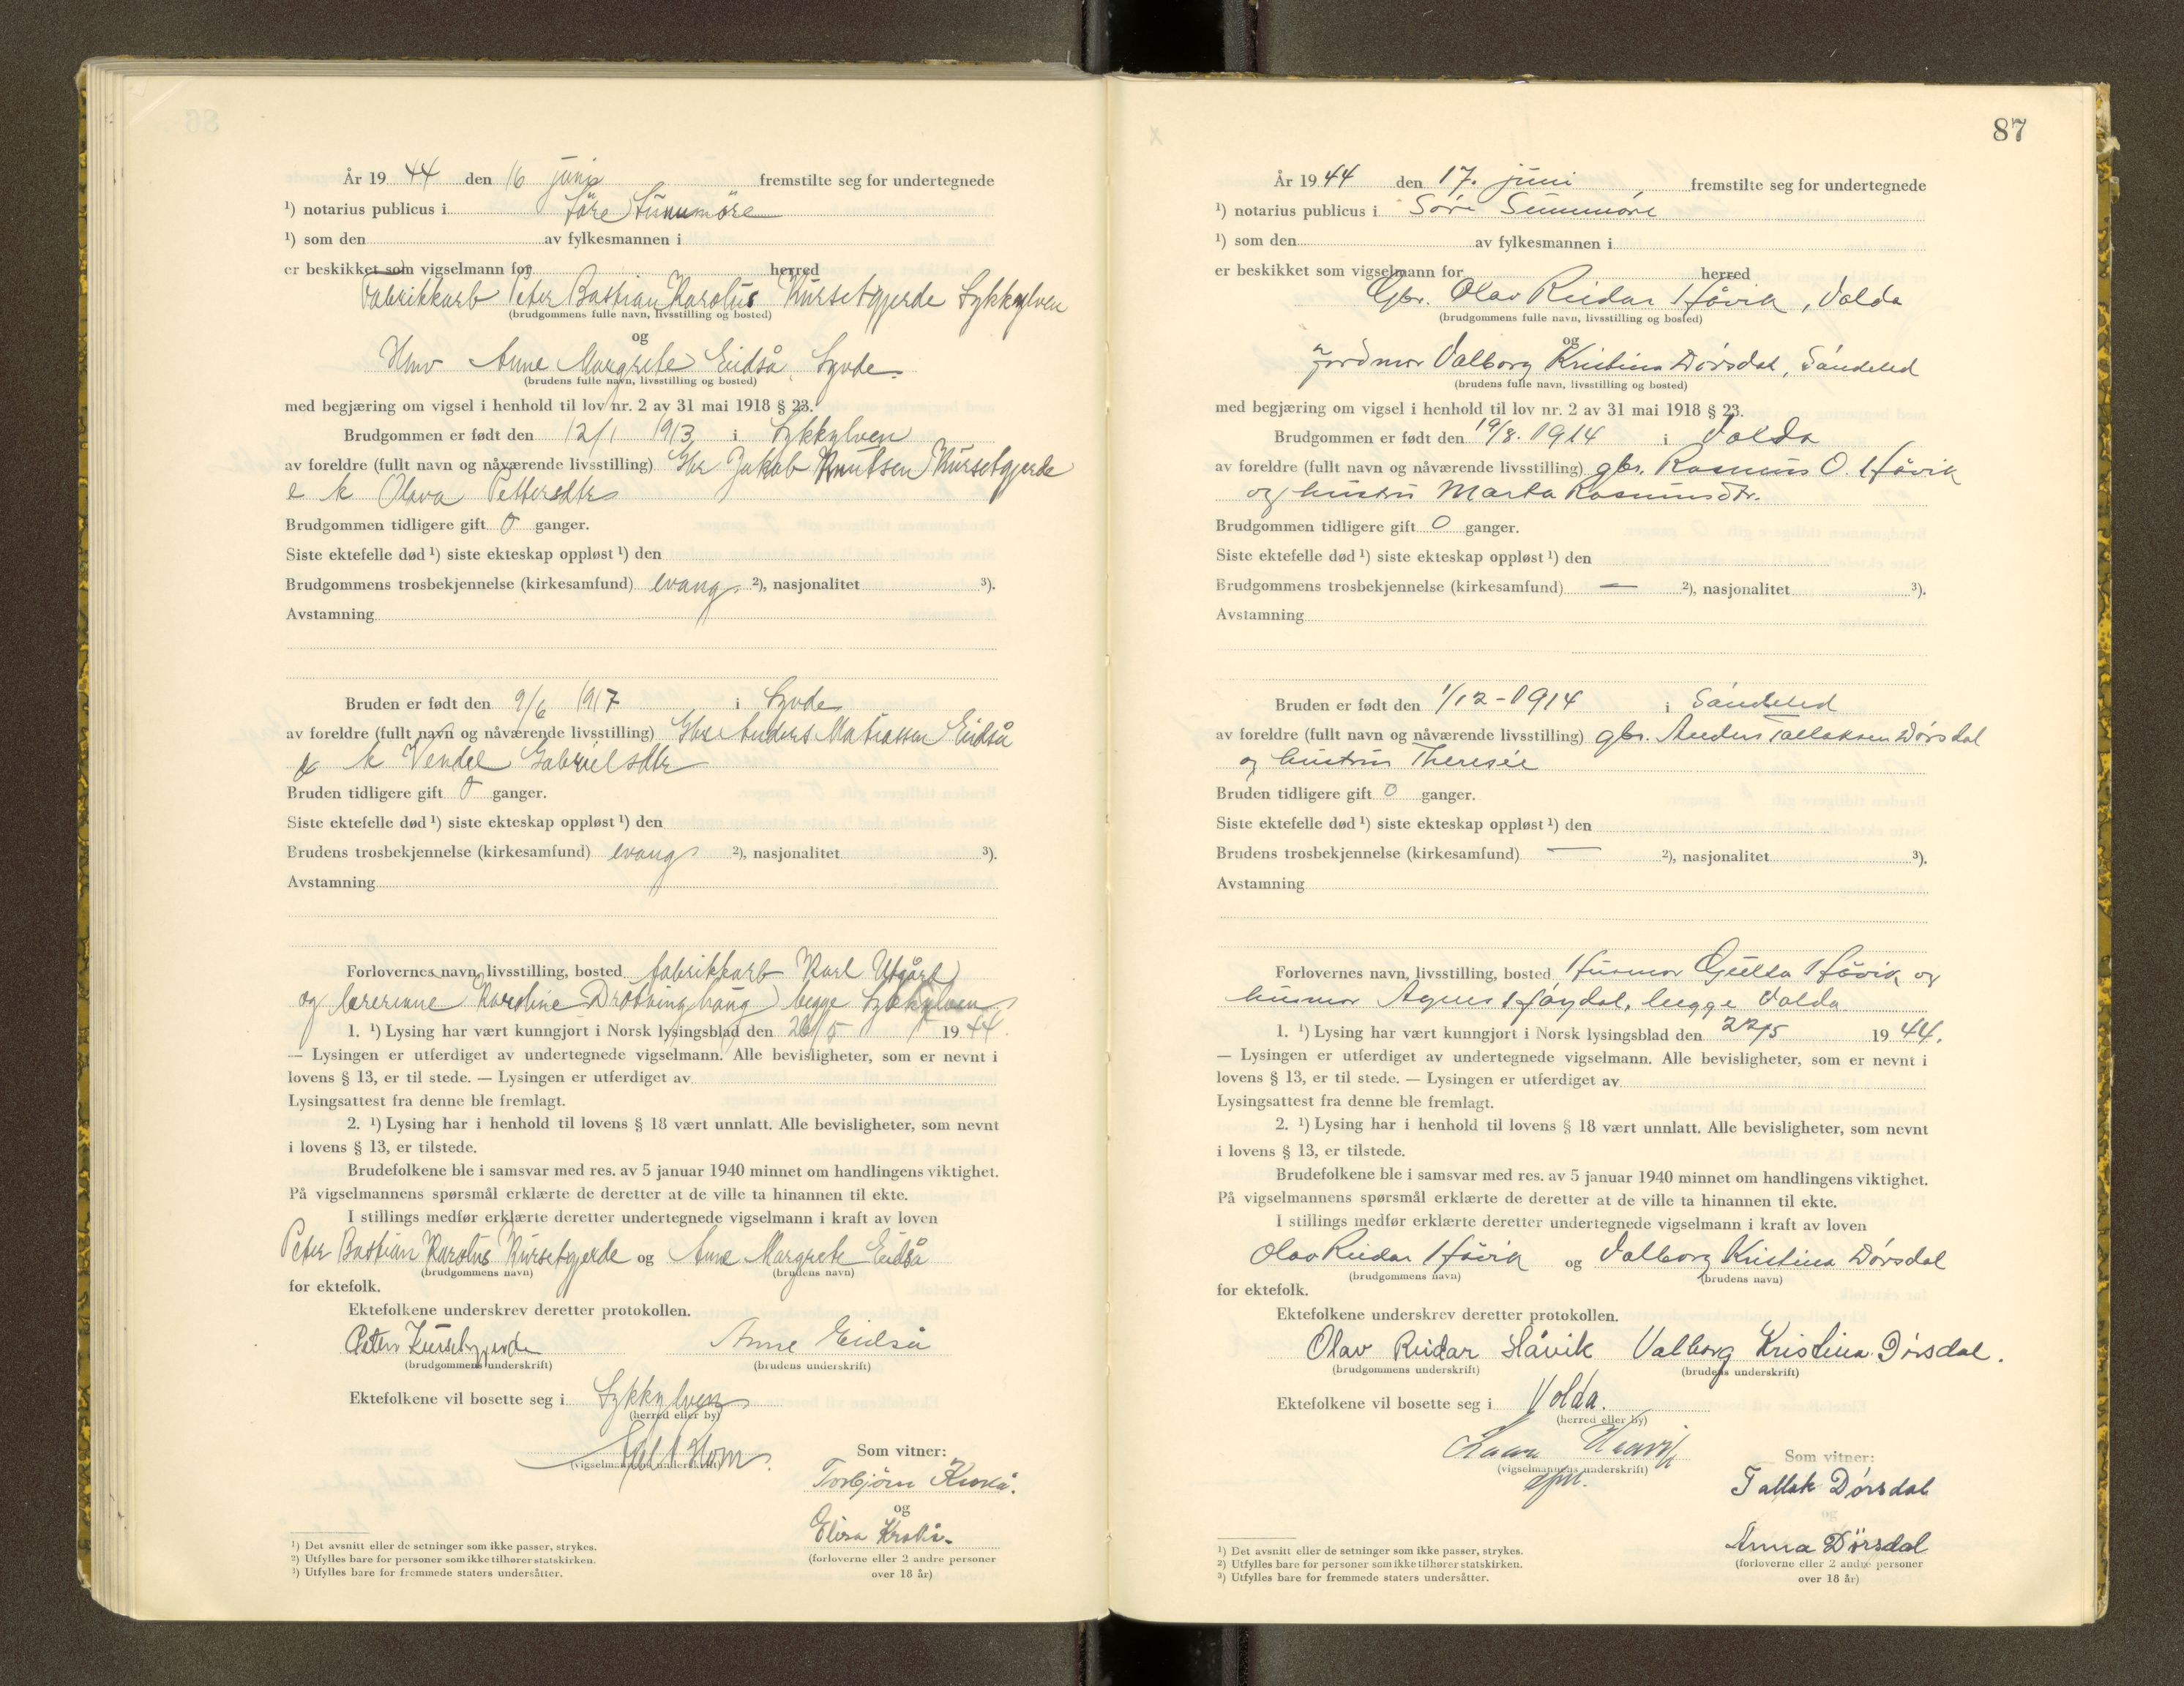 År 19 44 den 16 juni fremstilte seg for undertegnede
¹) notarius publicus i Søre Sunnmøre
¹) som den av fylkesmannen i
er beskikket som vigselmann for herred
Fabrikkarb Peter Bastian Karolus Kursetgjerde Sykkylven
(brudgommens fulle navn, livsstilling og bosted)
og
Hmv Anne Margrete Eidså, Syvde
(brudens fulle navn, livsstilling og bosted)
med begjæring om vigsel i henhold til lov nr. 2 av 31 mai 1918 § 23.
Brudgommen er født den 12/1 1913 i Sykkylven
av foreldre (fullt navn og nåværende livsstilling) Gbr Jakob Knutsen Kursetgjerde
e k Olava Pettersdtr
Brudgommen tidligere gift 0 ganger.
Siste ektefelle død ¹) siste ekteskap oppløst ¹) den
Brudgommens trosbekjennelse (kirkesamfund) evang ²), nasjonalitet ³).
Avstamning
Bruden er født den 9/6 1917 i Syvde
av foreldre (fullt navn og nåværende livsstilling) Gbr Anders Matiassen Eidså
k Vendel Gabrielsdtr
Bruden tidligere gift 0 ganger.
Siste ektefelle død ¹) siste ekteskap oppløst ¹) den
Brudens trosbekjennelse (kirkesamfund) evang ²), nasjonalitet ³).
Avstamning
Forlovernes navn, livsstilling, bosted fabrikkarb Karl Utgård
og lærerinne Karoline Drotninghaug begge Sykkylven
1. ¹) Lysing har vært kunngjort i Norsk lysingsblad den 26/5 19 44.
— Lysingen er utferdiget av undertegnede vigselmann. Alle bevisligheter, som er nevnt i
lovens § 13, er til stede. — Lysingen er utferdiget av
Lysingsattest fra denne ble fremlagt.
2. ¹) Lysing har i henhold til lovens § 18 vært unnlatt. Alle bevisligheter, som nevnt
i lovens § 13, er tilstede.
Brudefolkene ble i samsvar med res. av 5 januar 1940 minnet om handlingens viktighet.
På vigselmannens spørsmål erklærte de deretter at de ville ta hinannen til ekte.
I stillings medfør erklærte deretter undertegnede vigselmann i kraft av loven
Peter Bastian Karolus Kursetgjerde og Anne Margrete Eidså
(brudgommens navn) (brudens navn)
for ektefolk.
Ektefolkene underskrev deretter protokollen.
Peter Kursetgjerde Anne Eidså
(brudgommens underskrift) (brudens underskrift)
Ektefolkene vil bosette seg i Sykkylven
(herred eller by)
(vigselmannens underskrift)
Som vitner:
Torbjørn
og
(forloverne eller 2 andre personer
over 18 år)
¹) Det avsnitt eller de setninger som ikke passer, strykes.
²) Utfylles bare for personer som ikke tilhører statskirken.
³) Utfylles bare for fremmede staters undersåtter.
87
År 19 44 den 17. juni fremstilte seg for undertegnede
¹) notarius publicus i Søre Sunnmøre
¹) som den av fylkesmannen i
er beskikket som vigselmann for herred
Gbr. Olav Reidar Håvik, Volda
(brudgommens fulle navn, livsstilling og bosted)
og
jordmor Valborg Kristina Dørsdal, Søndeled
(brudens fulle navn, livsstilling og bosted)
med begjæring om vigsel i henhold til lov nr. 2 av 31 mai 1918 § 23.
Brudgommen er født den 19/8. 1914 i Volda
av foreldre (fullt navn og nåværende livsstilling) gbr. Rasmus O. Håvik
og hustru Marta Rasmusdtr.
Brudgommen tidligere gift 0 ganger.
Siste ektefelle død ¹) siste ekteskap oppløst ¹) den
Brudgommens trosbekjennelse (kirkesamfund) — ²), nasjonalitet ³).
Avstamning
Bruden er født den 1/12 - 1914 i Søndeled
av foreldre (fullt navn og nåværende livsstilling) gbr. Anders Tallaksen Dørsdal
og hustru Theresie
Bruden tidligere gift 0 ganger.
Siste ektefelle død ¹) siste ekteskap oppløst ¹) den
Brudens trosbekjennelse (kirkesamfund) — ²), nasjonalitet ³).
Avstamning
Forlovernes navn, livsstilling, bosted Husmor Gjertta Håvik og
husmor Agnes Høydal, begge Volda
1. ¹) Lysing har vært kunngjort i Norsk lysingsblad den 22/5 19 44.
— Lysingen er utferdiget av undertegnede vigselmann. Alle bevisligheter, som er nevnt i
lovens § 13, er til stede. — Lysingen er utferdiget av
Lysingsattest fra denne ble fremlagt.
2. ¹) Lysing har i henhold til lovens § 18 vært unnlatt. Alle bevisligheter, som nevnt
i lovens § 13, er tilstede.
Brudefolkene ble i samsvar med res. av 5 januar 1940 minnet om handlingens viktighet.
På vigselmannens spørsmål erklærte de deretter at de ville ta hinannen til ekte.
I stillings medfør erklærte deretter undertegnede vigselmann i kraft av loven
Olav Reidar Håvik og Valborg Kristina Dørsdal
(brudgommens navn) (brudens navn)
for ektefolk.
Ektefolkene underskrev deretter protokollen.
Olav Reidar Håvik Valborg Kristina Dørsdal.
(brudgommens underskrift) (brudens underskrift)
Ektefolkene vil bosette seg i Volda.
(herred eller by)
(vigselmannens underskrift)
Som vitner:
Tallak Dørsdal
og
Anna Dørsdal
(forloverne eller 2 andre personer
over 18 år)
¹) Det avsnitt eller de setninger som ikke passer, strykes.
²) Utfylles bare for personer som ikke tilhører statskirken.
³) Utfylles bare for fremmede staters undersåtter.